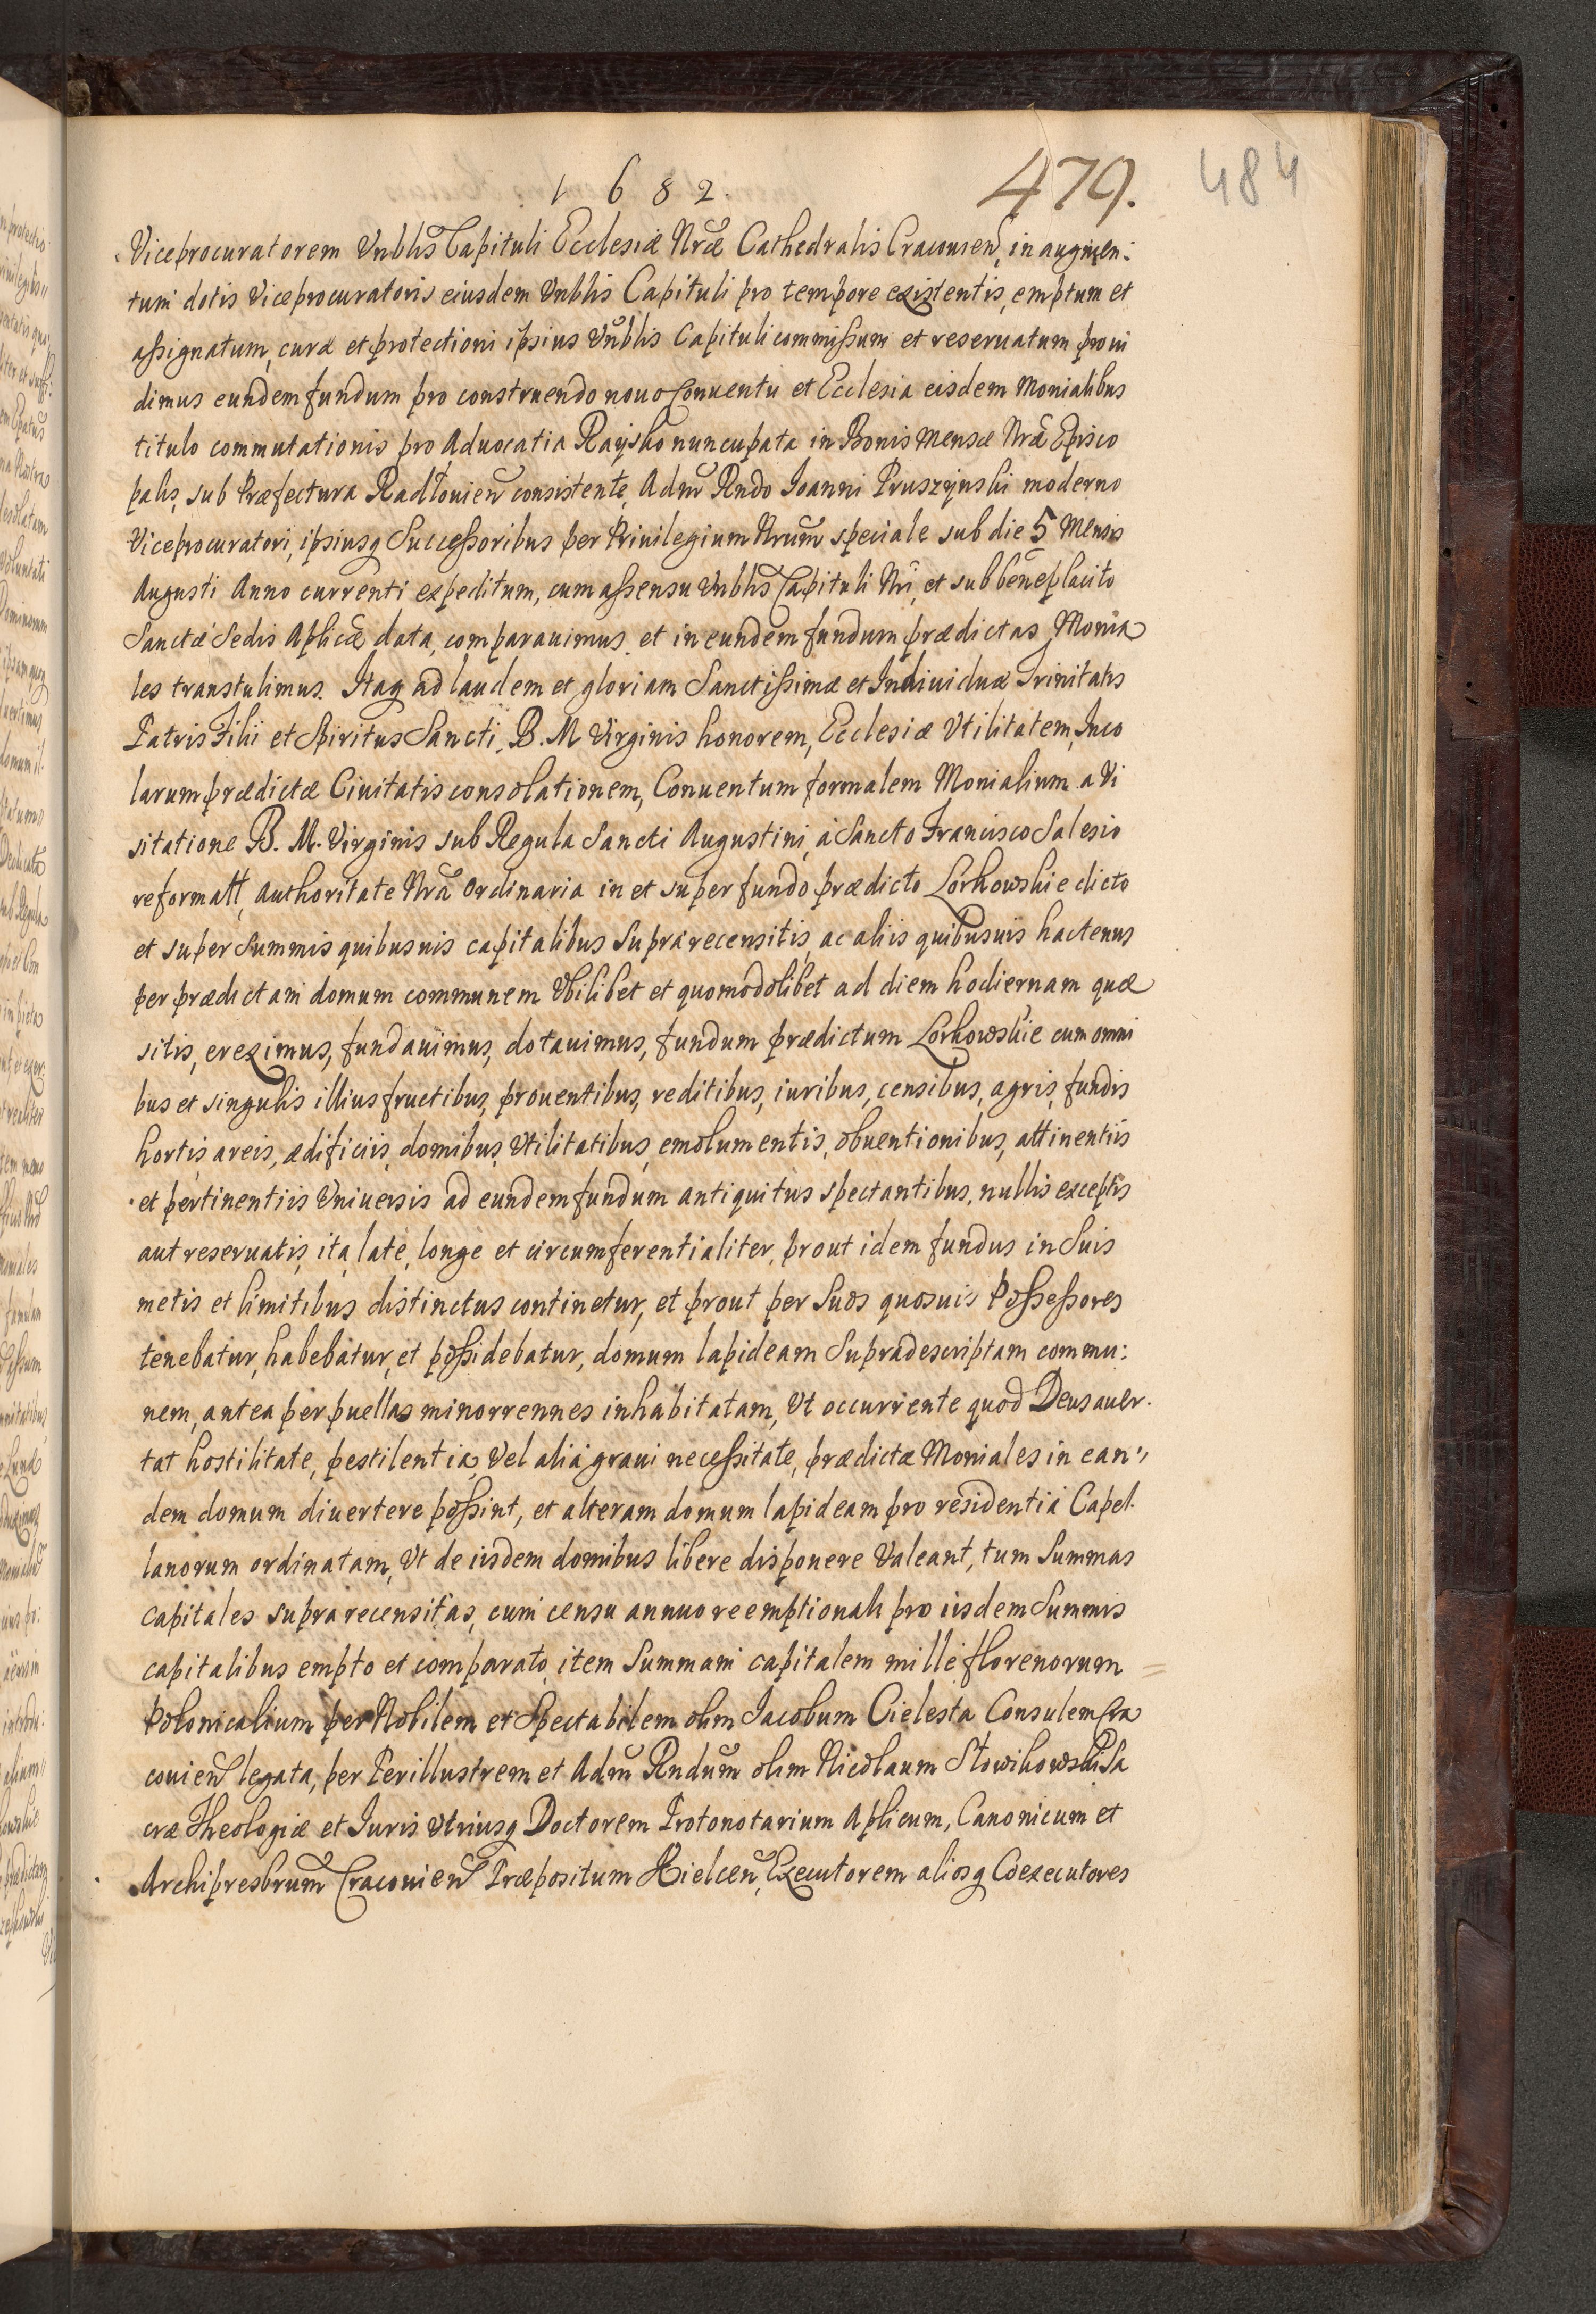 1682.
479.
484
Viceprocuratorem Vnblis Capituli Ecclesiæ Nræ Cathedralis Cracouien, in augmen:
tum dotis Viceprocuratoris eiusdem Vnblis Capituli pro tempore existentis, emptum et
assignatum, curæ et protectioni ipsius Vnblis Capituli commissum et reseruatum proui
dimus eundem fundum pro construendo nouo Conuentu et Ecclesia eisdem Monialibus
titulo commutationis pro Aduocatia Raysko nuncupata in Bonis Mensæ Nrã Episco
palis, sub Præfectura Radłouien consistente, Adm Rndo Ioanni Pruszynski moderno
Viceprocuratori, ipsiusq Successoribus per Priuilegium Nrum speciale sub die 5 Mensis
Augusti Anno currenti expeditum, cum assensu Vnblis Capituli Nri, et sub beneplacito
Sanctæ Sedis Aplicæ data, comparauimus, et in eundem fundum prædictas Monia
les transtulimus. Itaq ad laudem et gloriam Sanctissimæ et Indiuiduæ Trinitatis
Patris Filii et Spiritus Sancti, B. M Virginis honorem, Ecclesiæ Vtilitatem, Inco
larum prædictæ Ciuitatis consolationem, Conuentum formalem Monialium a Vi
sitatione B. M. Virginis sub Regula Sancti Augustini, à Sancto Francisco Salesio
reformatt, authoritate Nrã Ordinaria in et super fundo prædicto Lorkowskie dicto
et super Summis quibusuis capitalibus Supra recensitis, ac aliis quibusuis hactenus
per prædictam domum communem Vbilibet et quomodolibet ad diem hodiernam quæ
sitis, ereximus, fundauimus, dotauimus, fundum prædictum Lorkowskie cum omni
bus et singulis illius fructibus, prouentibus, reditibus, iuribus, censibus, agris, fundis
hortis areis, ædificiis, domibus, Vtilitatibus, emolumentis, obuentionibus, attinentiis
et pertinentiis Vniuersis ad eundem fundum antiquitus spectantibus, nullis exceptis
aut reseruatis, ita, late, longe et circumferentialiter, prout idem fundus in Suis
metis et limitibus distinctus continetur, et prout per Suos quosuis Possessores
tenebatur, habebatur, et possidebatur, domum lapideam Supradescriptam commu:
nem, antea per puellas minorrennes inhabitatam, Vt occurrente quod Deus auer
tat hostilitate, pestilentia, Vel aliâ graui necessitate, prædictæ Moniales in ean,,
dem domum diuertere possint, et alteram domum lapideam pro residentiâ Capel
lanorum ordinatam, Vt de iisdem domibus libere disponere Valeant, tum Summas
capitales supra recensitas, cum censu annuo reemptionali pro iisdem Summis
capitalibus empto et comparato, item Summam capitalem mille florenorum
Polonicalium per Nobilem et Spectabilem olim Iacobum Cielesta Consulem Cra
couien legata, per Perillustrem et Adm Rndum olim Nicolaum Słowikowski Sa
cræ Theologiæ et Iuris Vtriusq Doctorem Protonotarium Aplicum, Canonicum et
Archipresbrum Cracouien Præpositum Kielcen, Executorem aliosq Coexecutores